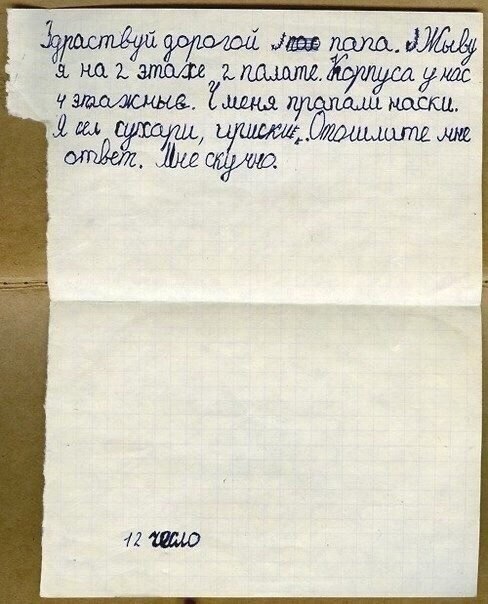 Здраствуй дорогой папа. Жыву
я на 2 этаже 2 палате. Корпуса у нас
4 этажные. У меня прапали наски.
Я ел сухари, ириски. Отошлите мне
ответ. Мне скучно.
12 число